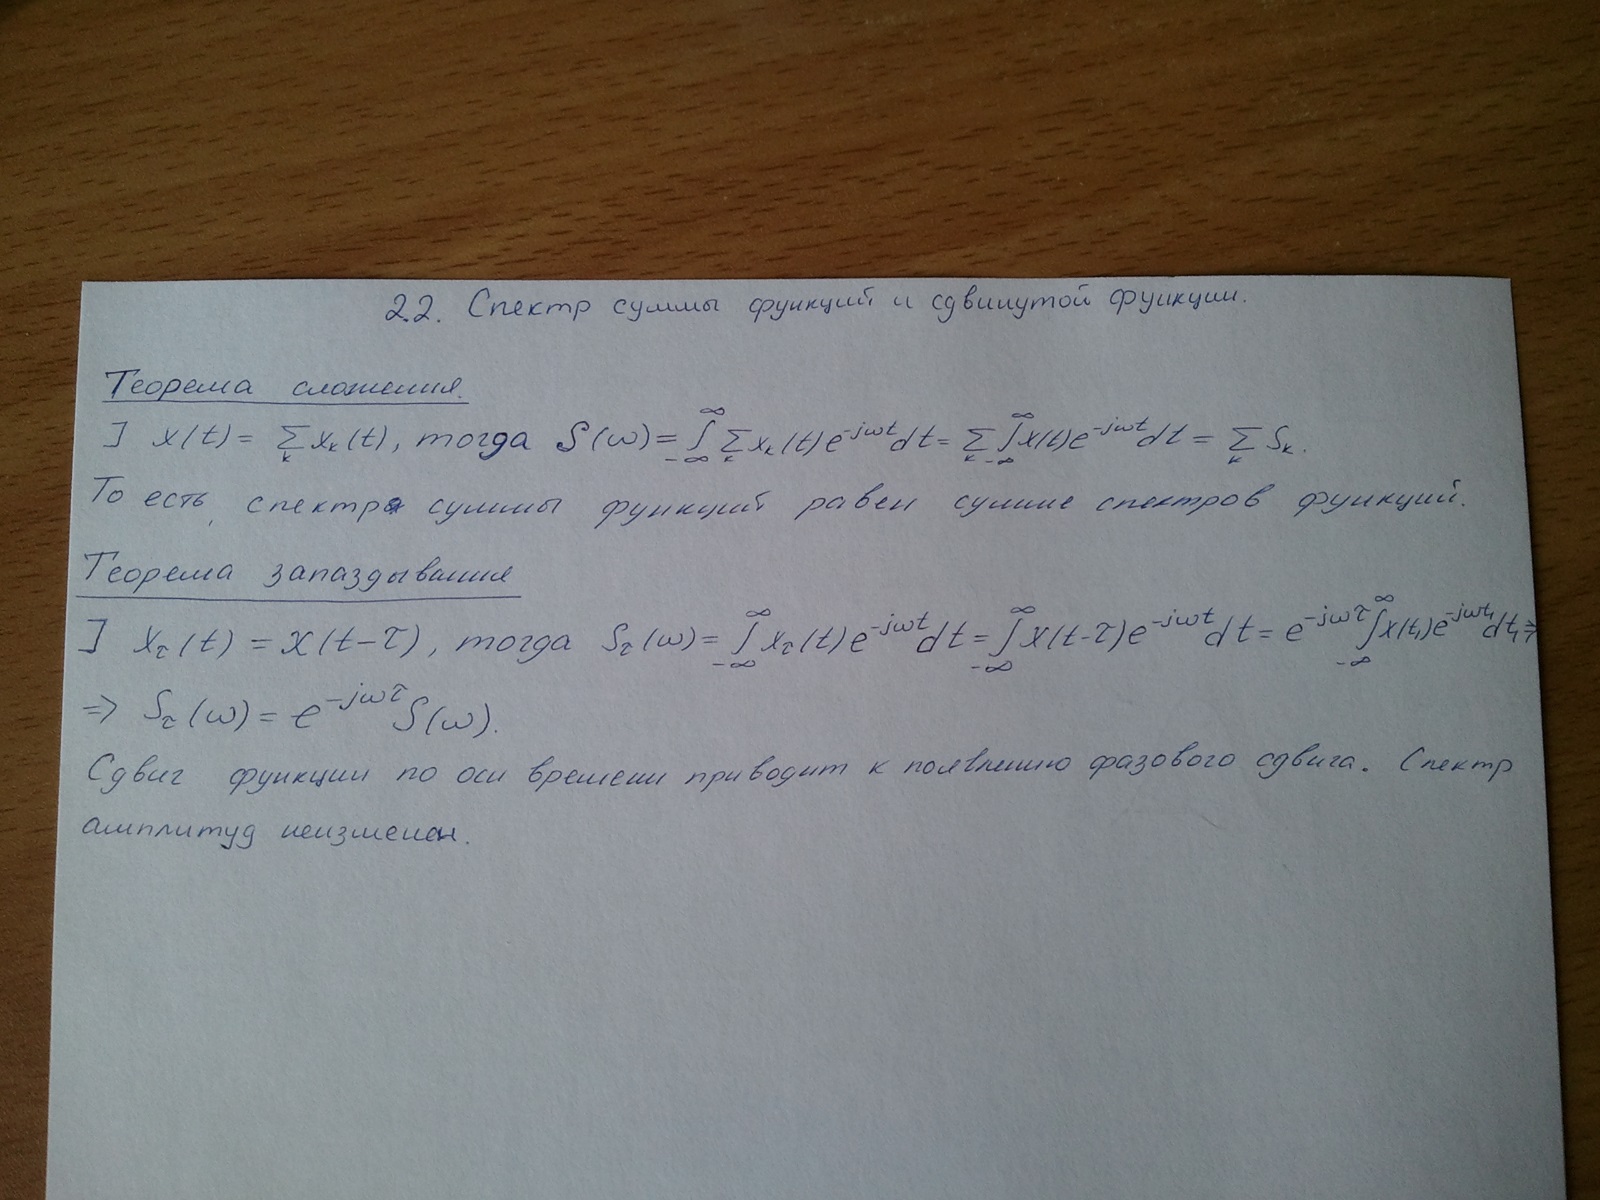 2.2. Спектр суммы функций и сдвинутой функции.
Теорема сложения.
] x(t) = ∑_k x_k(t), тогда S(ω) = ∫_{-∞}^{∞} ∑_k x_k(t) e^{-jωt} dt = ∑_k ∫_{-∞}^{∞} x(t) e^{-jωt} dt = ∑_k S_k.
То есть, спектр суммы функций равен сумме спектров функций.
Теорема запаздывания
] x_τ(t) = x(t-τ), тогда S_τ(ω) = ∫_{-∞}^{∞} x_τ(t) e^{-jωt} dt = ∫_{-∞}^{∞} x(t-τ) e^{-jωt} dt = e^{-jωτ} ∫_{-∞}^{∞} x(t_1) e^{-jωt_1} dt_1 ⇒
⇒ S_τ(ω) = e^{-jωτ} S(ω).
Сдвиг функции по оси времени приводит к появлению фазового сдвига. Спектр
амплитуд неизменен.